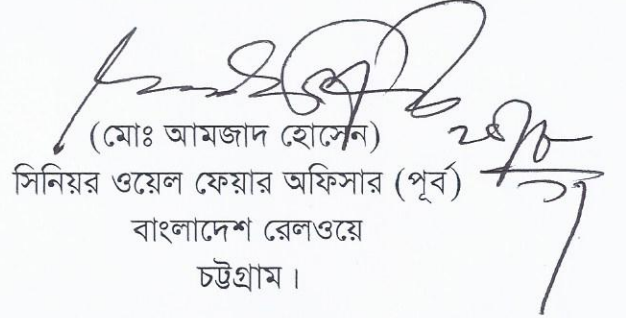 (মোঃ আমজাদ হোসেন)
সিনিয়র ওয়েল ফেয়ার অফিসার (পূর্ব)
বাংলাদেশ রেলওয়ে
চট্টগ্রাম।